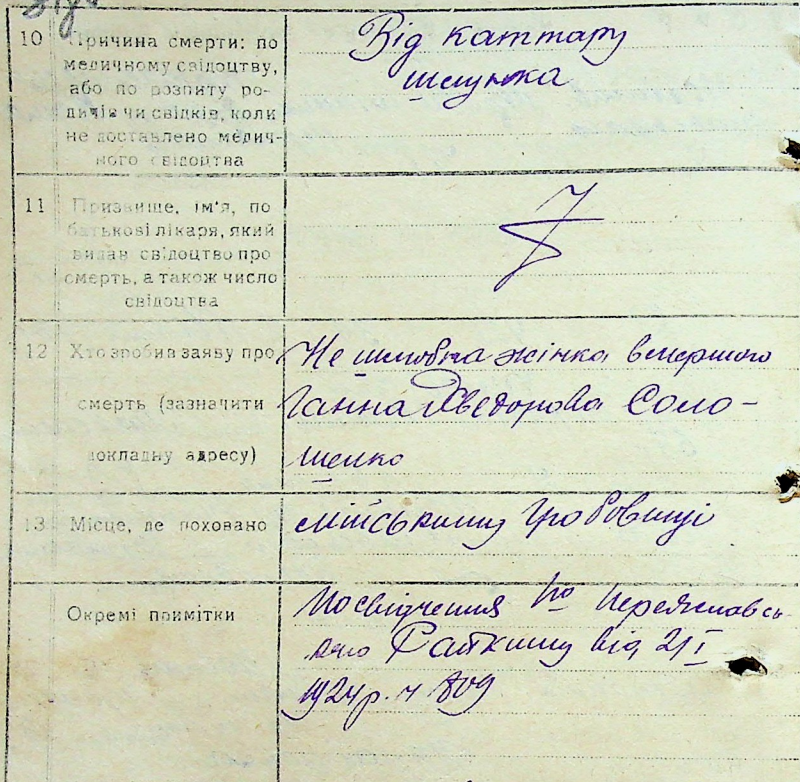 10 Причина смерти: по
медичному свідоцтву,
або по розпиту ро-
дичів чи свідків, коли
не доставлено медич-
ного свідоцтва
Від каттару
шлунка
11 Призвище, ім'я, по
батькові лікаря, який
видав свідоцтво про
смерть, а також число
свідоцтва
12 Хто зробив заяву про
смерть (зазначити
докладну адресу)
Не шлюбна жінка вмершого
Ганна Хведорова Соло-
шенко
13 Місце, де поховано
міському гробовищі
Окремі примітки
Посвідчення по Переяславсь-
кого від 21/I
1924 р. ч 809